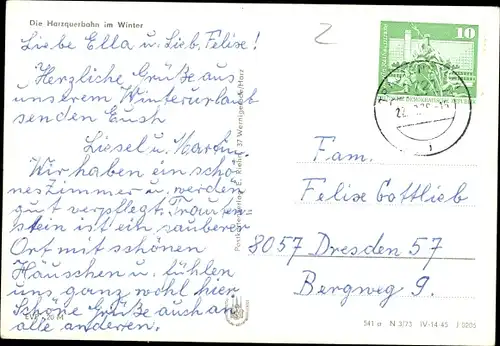 Die Harzquerbahn im Winter
Liebe Ella u. Lieb. Felise!
Herzliche Grüße aus
unserem Winterurlaub
senden Euch
Liesel u. Martin.
Wir haben ein schö-
nes Zimmer u. werden
gut verpflegt. Trauten-
stein ist ein sauberer
Ort mit schönen
Häuschen u. fühlen
uns ganz wohl hier
Schöne Grüße auch an
alle anderen.
EVP 0,20 M
E. Riehn, 37 Wernigerode/Harz
10
Fam.
Felise Gottlieb
8057 Dresden 57
Bergweg 9.
541 a N 3/73 IV-14-45 J 0205
2